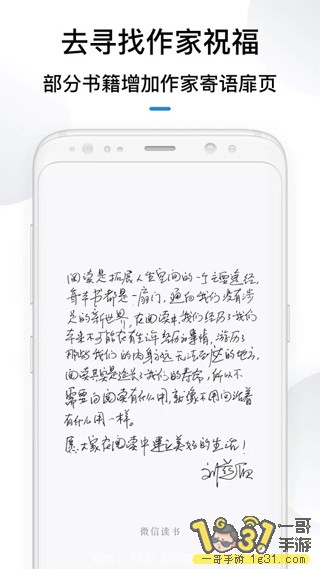 去寻找作家祝福
部分书籍增加作家寄语扉页
阅读是拓展人生空间的一个主要途径，
每本书都是一扇门，通向我们没有涉
足的新世界，在阅读中，我们经历了我们
在来不可能在有生之年经历的事情，游历了
那些我们的肉身永远无法到达的地方，
阅读其实是延长了我们的寿命，所以不
需要问阅读有什么用，就像不用问活着
有什么用一样。
愿大家在阅读中建立美好的生活！
刘慈欣
微信读书
1g31.com
一哥手游
一哥手游 1g31.com